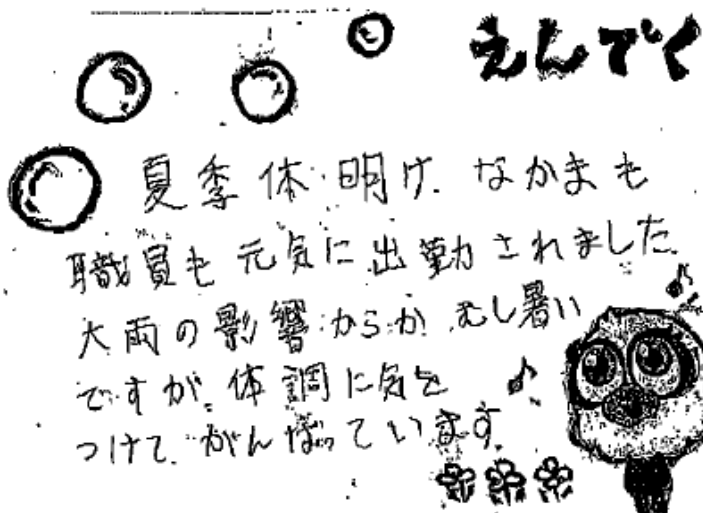 えんでく
夏季休明け、なかまも
職員も元気に出勤されました。
大雨の影響からか、むし暑い
ですが、体調に気を
つけて、がんばっています。